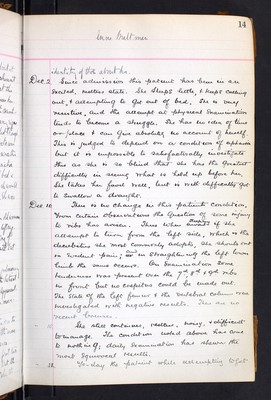 14
identity of those about her.
Dec. 2. Since admission this patient has been in an
excited, restless state. She sleeps little, & keeps calling
out, & attempting to get out of bed. She is very
resistive, and the attempt at physical examination
tends to become a struggle. She has no idea of time
or place & can give absolutely no account of herself.
This is judged to depend on a condition of aphasia
but it is impossible to satisfactorily investigate
this as she is so blind that she has the greatest
difficulty in seeing what is held up before her.
She takes her food well, but is with difficulty got
to swallow a draught.
Dec. 10. There is no change in this patient's condition.
From certain observations the question of some injury
to ribs has arisen. Thus when
attempt to turn from the left side, which is the
decubitus she most commonly adopts, she shouts out
in evident pain; and on straightening the left lower
limb the same occurs. On examination some
tenderness was present over the 7th 8th & 9th ribs
in front but no crepitus could be made out.
The state of the left femur & the vertebral column was
investigated with negative results. There are no
recent bruises.
She still continues, restless, noisy, & difficult
to manage. The condition noted above has come
to nothing; daily examination has shewn the
most equivocal results.
To-day the patient while attempting to get